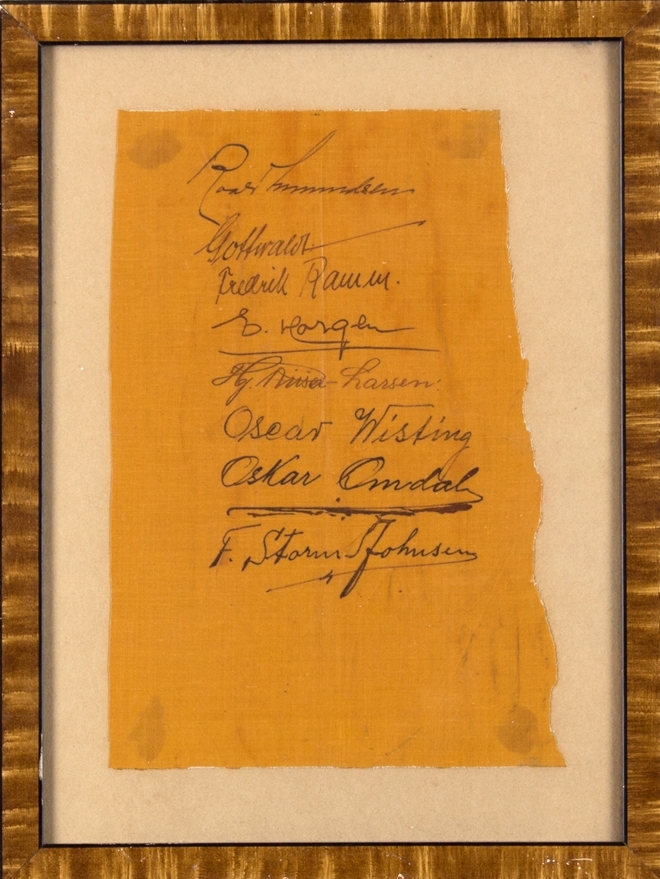 Roald Amundsen
Gottwaldt
Fredrik Ramm.
E. Horgen
Hj. Riiser-Larsen.
Oscar Wisting
Oskar Omdal
F. Storm Johnsen